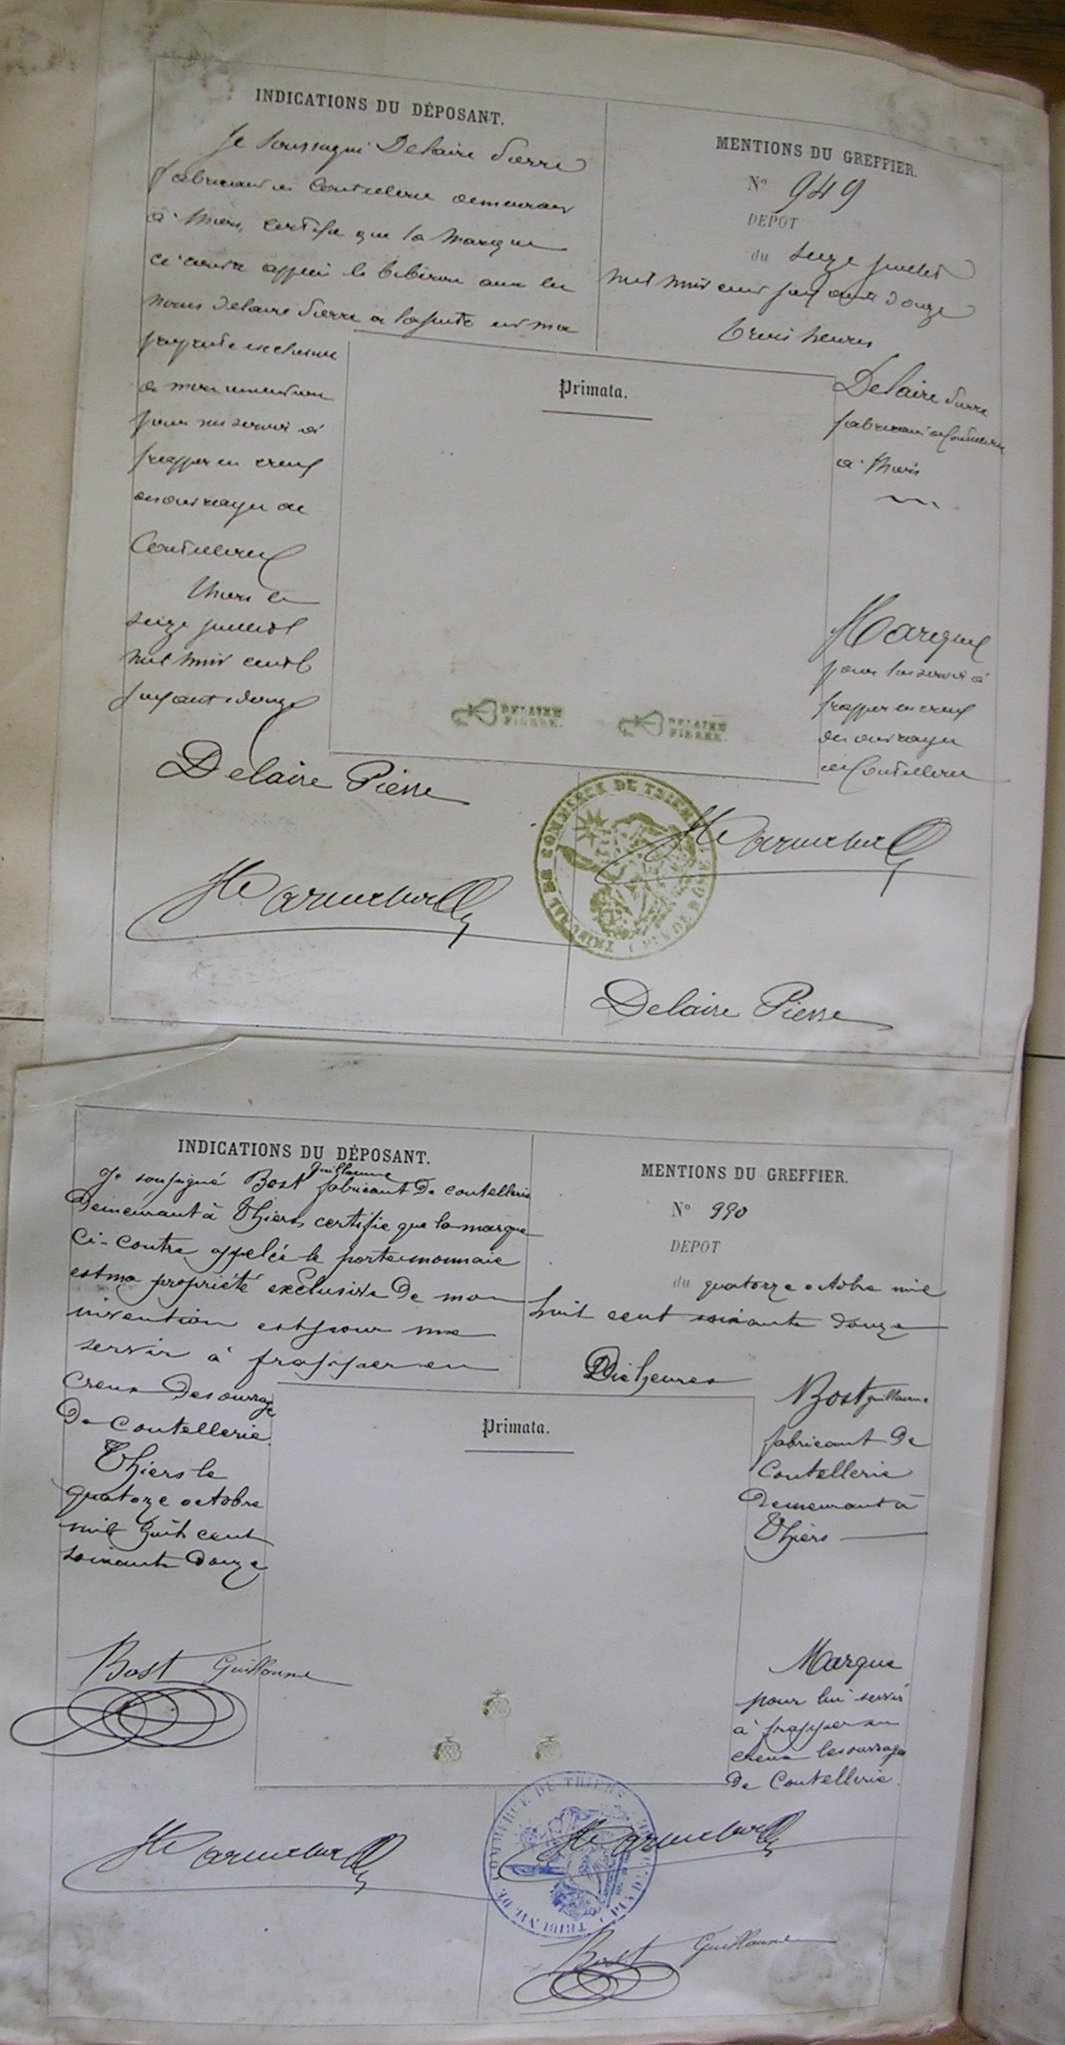 INDICATIONS DU DÉPOSANT.
Je soussigné Delaire Pierre
fabricant de Coutellerie demeurant
à Thiers, certifie que la marque
ci contre appelé le bibéron avec les
noms Delaire Pierre à la suite est ma
propriété exclusive
de mon invention
pour me servir à
frapper en creux
des ouvrages de
Coutellerie
Thiers le
seize juillet
mil huit cent
soixante douze
Delaire Pierre
MENTIONS DU GREFFIER.
N° 949
DEPOT
du seize juillet
mil huit cent soixante douze
trois heures
Primata.
Delaire Pierre
fabricant de Coutellerie
à Thiers
Marque
pour lui servir à
frapper en creux
des ouvrages
de Coutellerie
DELAIRE
PIERRE.
DELAIRE
PIERRE.
TRIBUNAL DE COMMERCE DE THIERS
Delaire Pierre
INDICATIONS DU DÉPOSANT.
Guillaume
Je soussigné Bost fabricant De coutellerie
Demeurant à Thiers certifie que la marque
Ci-contre appelée le portemonnaie
est ma propriété exclusive De mon
invention est pour me
servir à frapper en
Creux Des ouvrage
De Coutellerie.
Thiers le
quatorze octobre
mil huit cent
soixante Douze
Bost Guillaume
MENTIONS DU GREFFIER.
N° 990
DEPOT
du quatorze octobre mil
huit cent soixante douze
Dix heures
Primata.
Bost guillaume
fabricant De
Coutellerie
Demeurant à
Thiers
Marque
pour lui servir
à frapper en
creux les ouvrages
De Coutellerie.
TRIBUNAL DE COMMERCE DE THIERS
Bost Guillaume